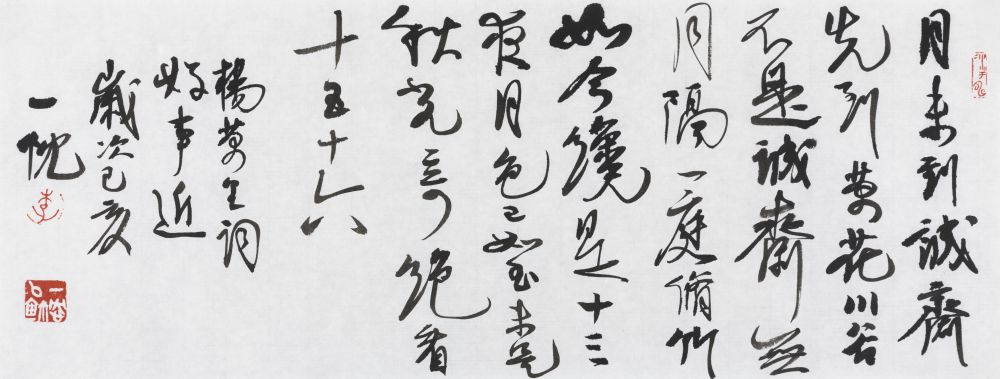 月未到誠齋
先到萬花川谷
不是誠齋無
月隔一庭脩竹
如今纔是十三
夜月色已如玉未是
秋光奇絕看
十五十六
楊萬里詞
好事近
歲次己亥
一
李